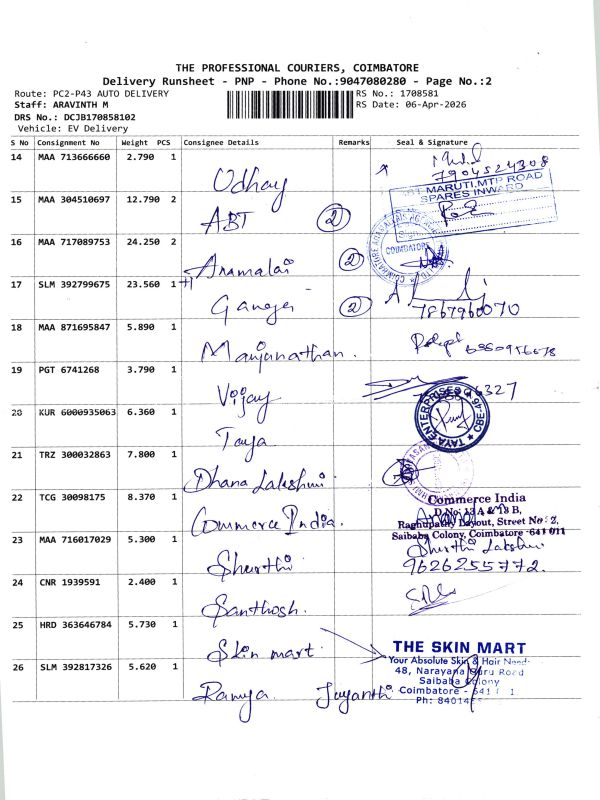 THE PROFESSIONAL COURIERS, COIMBATORE
Delivery Runsheet - PNP - Phone No.:9047080280 - Page No.:2
Route: PC2-P43 AUTO DELIVERY
RS No.: 1708581
Staff: ARAVINTH M
RS Date: 06-Apr-2026
DRS No.: DCJB170858102
Vehicle: EV Delivery
S No Consignment No Weight PCS Consignee Details Remarks Seal & Signature
14 MAA 713666660 2.790 1 Udhay 7904524308
15 MAA 304510697 12.790 2 ABT 2 MARUTI,MTP ROAD
SPARES INWARD
16 MAA 717089753 24.250 2 Anamalai 2 COIMBATORE
17 SLM 392799675 23.560 1+1 Ganesh 2 7867960070
18 MAA 871695847 5.890 1 Manjunathan.
19 PGT 6741268 3.790 1 Vijay
20 KUR 6000935063 6.360 1 Taya TAYA ENTERPRISES
21 TRZ 300032863 7.800 1 Dhana Lakshmi
22 TCG 30098175 8.370 1 Commerce India. Commerce India
D.No: 13 A & 13 B,
Raghupathy Layout, Street No: 2,
Saibaba Colony, Coimbatore-641 011
23 MAA 716017029 5.300 1 Shurthi Shurthi Lakshmi
9626255772.
24 CNR 1939591 2.400 1 Santhosh.
25 HRD 363646784 5.730 1 Skin mart. THE SKIN MART
Your Absolute Skin & Hair Need
48, Narayana Guru Road
Saibaba Colony
Coimbatore - 641
Ph: 84014
26 SLM 392817326 5.620 1 Ramya Jayanthi